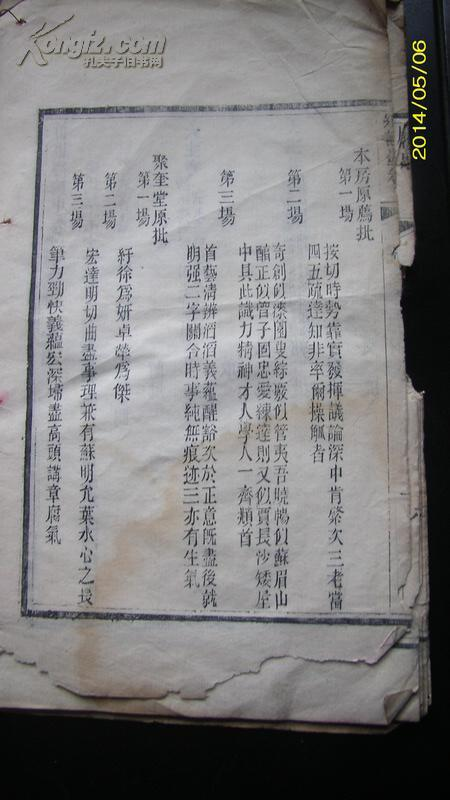 本房原薦批
第一場
按切時勢靠實發揮議論深中肯綮次三老當
四五疏達知非率爾操觚者
第二場
奇創似漆園叟綜覈似管夷吾曉暢似蘇眉山
醇正似曾子固忠愛練達則又似賈長沙矮屋
中具此識力精神才人學人一齊頫首
第三場
首藝清辨滔滔義蘊醒豁次於正意既盡後就
明强二字關合時事純無痕迹三亦有生氣
聚奎堂原批
第一場
紆徐爲妍卓犖爲傑
第二場
宏達明切曲盡事理兼有蘇明允葉水心之長
第三場
筆力勁快義蘊宏深埽盡高頭講章腐氣
Kongfz.com
孔夫子旧书网
2014/05/06